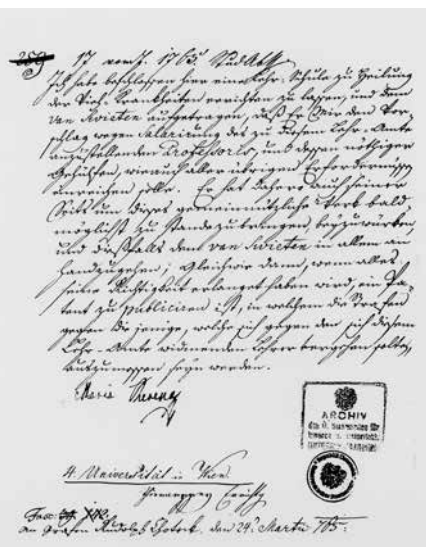 17 1765
Ich habe beschlossen hier eine Lehr-Schule zu Heilung
der Vieh-Krankheiten errichten zu lassen, und dem
van Swieten aufgetragen, daß Er Mir den Vor-
schlag wegen Salarirung des zu diesem Lehr-Amte
anzustellenden Professoris, und dessen nöthiger
Gehülfen, wie auch aller übrigen Erfordernissen
einreichen solle. Er hat dahero auch seiner
Seits um dieses gemeinnützliche Werk bald
möglichst zu Stande zu bringen, beyzuwürken,
und dießfalls dem van Swieten in allem an
Hand zu gehen; Gleichwie dann, wenn alles
seine Richtigkeit erlanget haben wird, ein Pa-
tent zu publiciren ist, in welchem die Strafen
gegen die jenige, welche sich gegen den sich diesem
Lehr-Amte widmenden Lehrer vergehen sollten,
auszumessen seyn werden.
Maria Theresia
ARCHIV
4. Universität in Wien
an Grafen Rudolph Chotek. den 24. Martii 765.